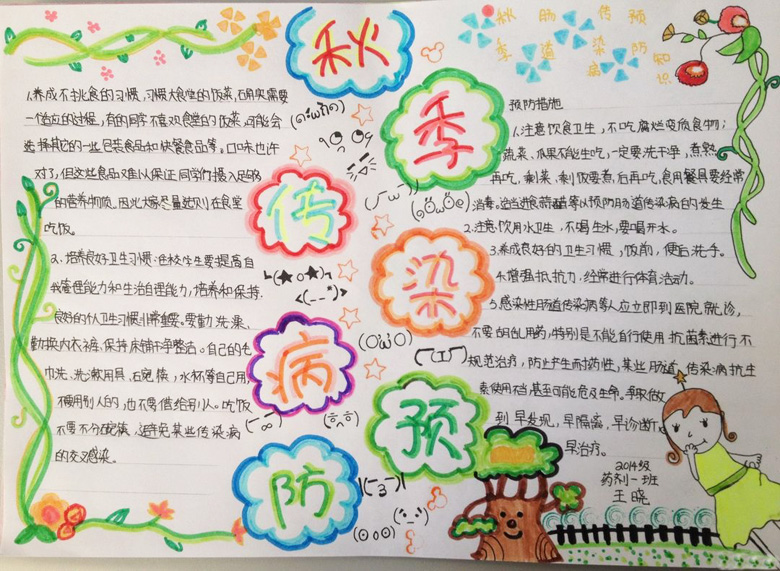 秋
季
传
染
病
预
防
秋 肠 传 预
季 道 染 防 知
病 识
1.养成不挑食的习惯,习惯大食堂的饭菜,确实需要
一个适应的过程,有的同学不喜欢食堂的饭菜,可能会
选择其它的一些包装食品和快餐食品等。口味也许
对了,但这些食品难以保证同学们摄入足够
的营养物质。因此大家尽量选则在食堂
吃饭。
2、培养良好卫生习惯:住校学生要提高自
我管理能力和生活自理能力,培养和保持
良好的个人卫生习惯非常重要。要勤洗澡、
勤换内衣裤、保持床铺干净整洁。自己的毛
巾洗、洗漱用具、碗筷、水杯等自己用,
不要用别人的,也不要借给别人。吃饭
不要不分碗筷、避免某些传染病
的交叉感染。
预防措施
1.注意饮食卫生,不吃腐烂变质食物;
蔬菜、瓜果不能生吃,一定要洗干净,煮熟
再吃,剩菜、剩饭要煮后再吃,食用餐具要经常
消毒。适当进食蒜醋等以预防肠道传染病的发生
2.注意饮用水卫生,不喝生水,要喝开水。
3.养成良好的卫生习惯,饭前,便后洗手。
4.增强抵抗力,经常进行体育活动。
5.感染性肠道传染病等人应立即到医院就诊,
不要胡乱用药,特别是不能自行使用抗菌素进行不
规范治疗,防止产生耐药性,某些肠道传染病抗生
素使用不当,甚至可能危及生命。争取做
到早发现,早隔离,早诊断,
早治疗。
2014级
药剂一班
王晓